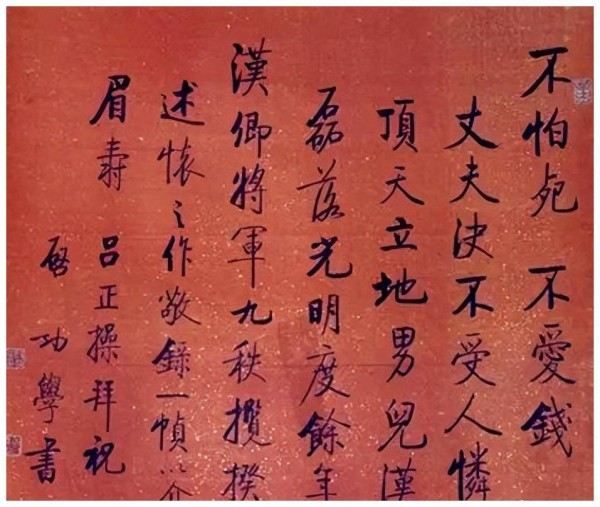 不怕死 不愛錢
丈夫決不受人憐
頂天立地男兒漢
磊落光明度餘年
漢卿將軍九秩攬揆
述懷之作敬錄一幀以介
眉壽 呂正操拜祝
啓功學書